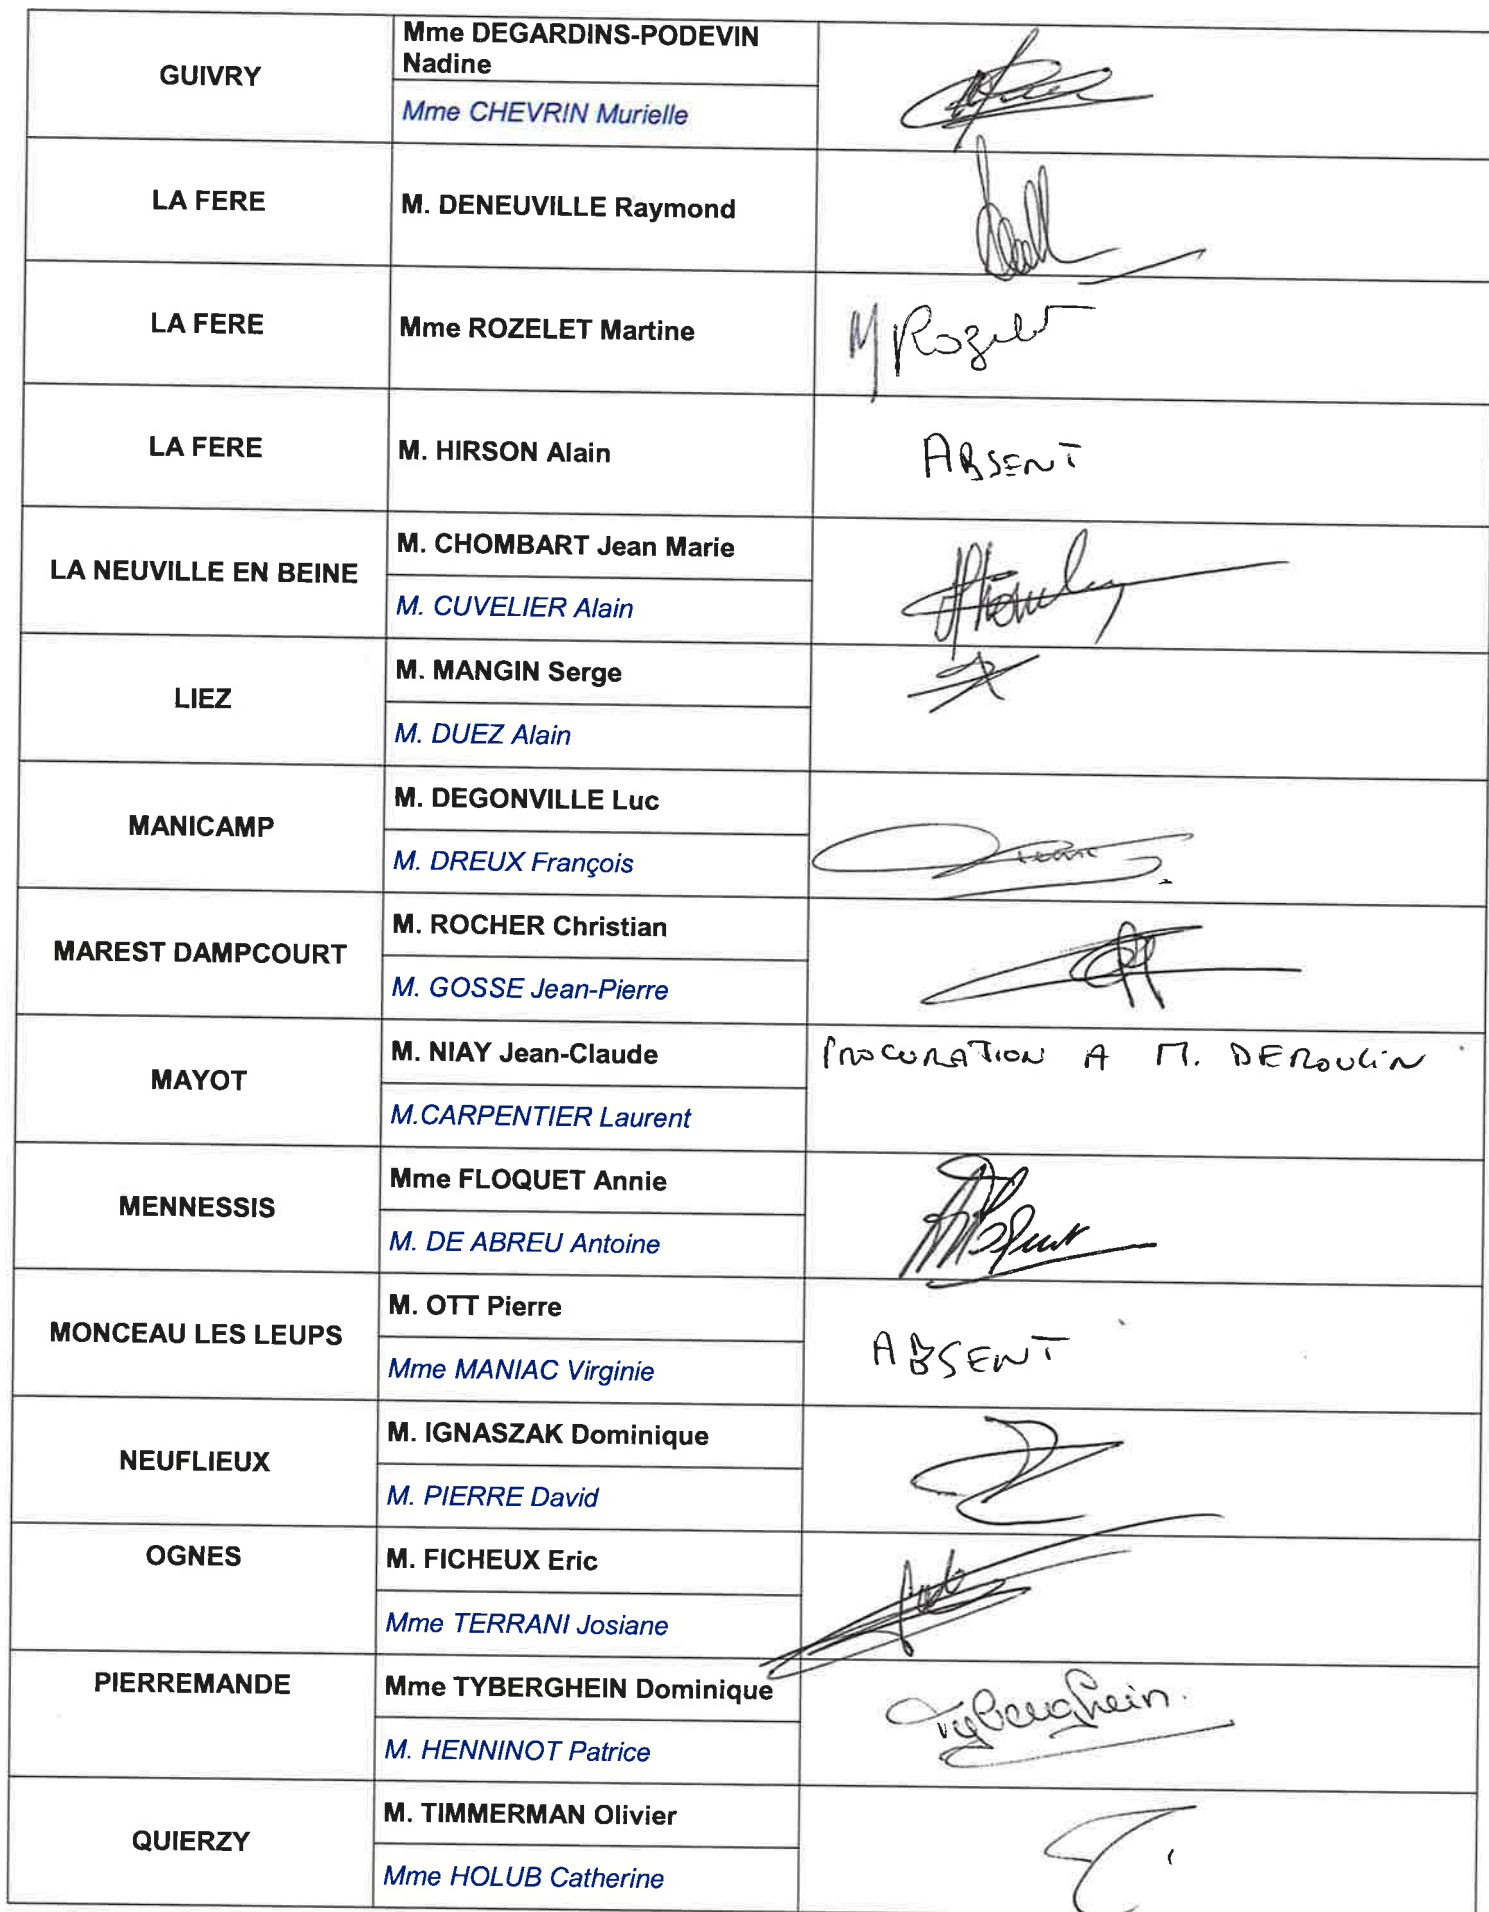 GUIVRY
Mme DEGARDINS-PODEVIN
Nadine
Mme CHEVRIN Murielle
LA FERE
M. DENEUVILLE Raymond
LA FERE
Mme ROZELET Martine
M Rozelet
LA FERE
M. HIRSON Alain
ABSENT
LA NEUVILLE EN BEINE
M. CHOMBART Jean Marie
M. CUVELIER Alain
LIEZ
M. MANGIN Serge
M. DUEZ Alain
MANICAMP
M. DEGONVILLE Luc
M. DREUX François
MAREST DAMPCOURT
M. ROCHER Christian
M. GOSSE Jean-Pierre
MAYOT
M. NIAY Jean-Claude
M.CARPENTIER Laurent
PROCURATION A M. DEROULIN
MENNESSIS
Mme FLOQUET Annie
M. DE ABREU Antoine
MONCEAU LES LEUPS
M. OTT Pierre
Mme MANIAC Virginie
ABSENT
NEUFLIEUX
M. IGNASZAK Dominique
M. PIERRE David
OGNES
M. FICHEUX Eric
Mme TERRANI Josiane
PIERREMANDE
Mme TYBERGHEIN Dominique
M. HENNINOT Patrice
Tyberghein
QUIERZY
M. TIMMERMAN Olivier
Mme HOLUB Catherine